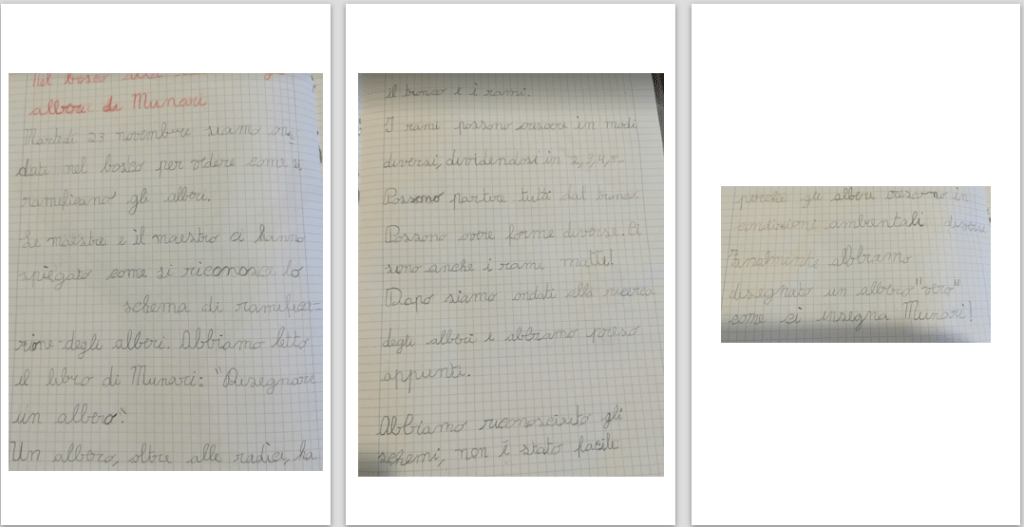 Nel bosco
albero di Munari
Martedì 23 novembre siamo an-
dati nel bosco per vedere come si
ramificano gli alberi.
Le maestre e il maestro ci hanno
spiegato come si riconosce lo
schema di ramifica=
zione degli alberi. Abbiamo letto
il libro di Munari: "Disegnare
un albero".
Un albero, oltre alle radici, ha
il tronco e i rami.
I rami possono crescere in modi
diversi, dividendosi in 2, 3, 4, 5..
Possono partire tutti dal tronco.
Possono avere forme diverse. Ci
sono anche i rami matti!
Dopo siamo andati alla ricerca
degli alberi e abbiamo preso
appunti.
Abbiamo riconosciuto gli
schemi, non è stato facile
perché gli alberi crescono in
condizioni ambientali diverse
Finalmente abbiamo
disegnato un albero "vero"
come ci insegna Munari!